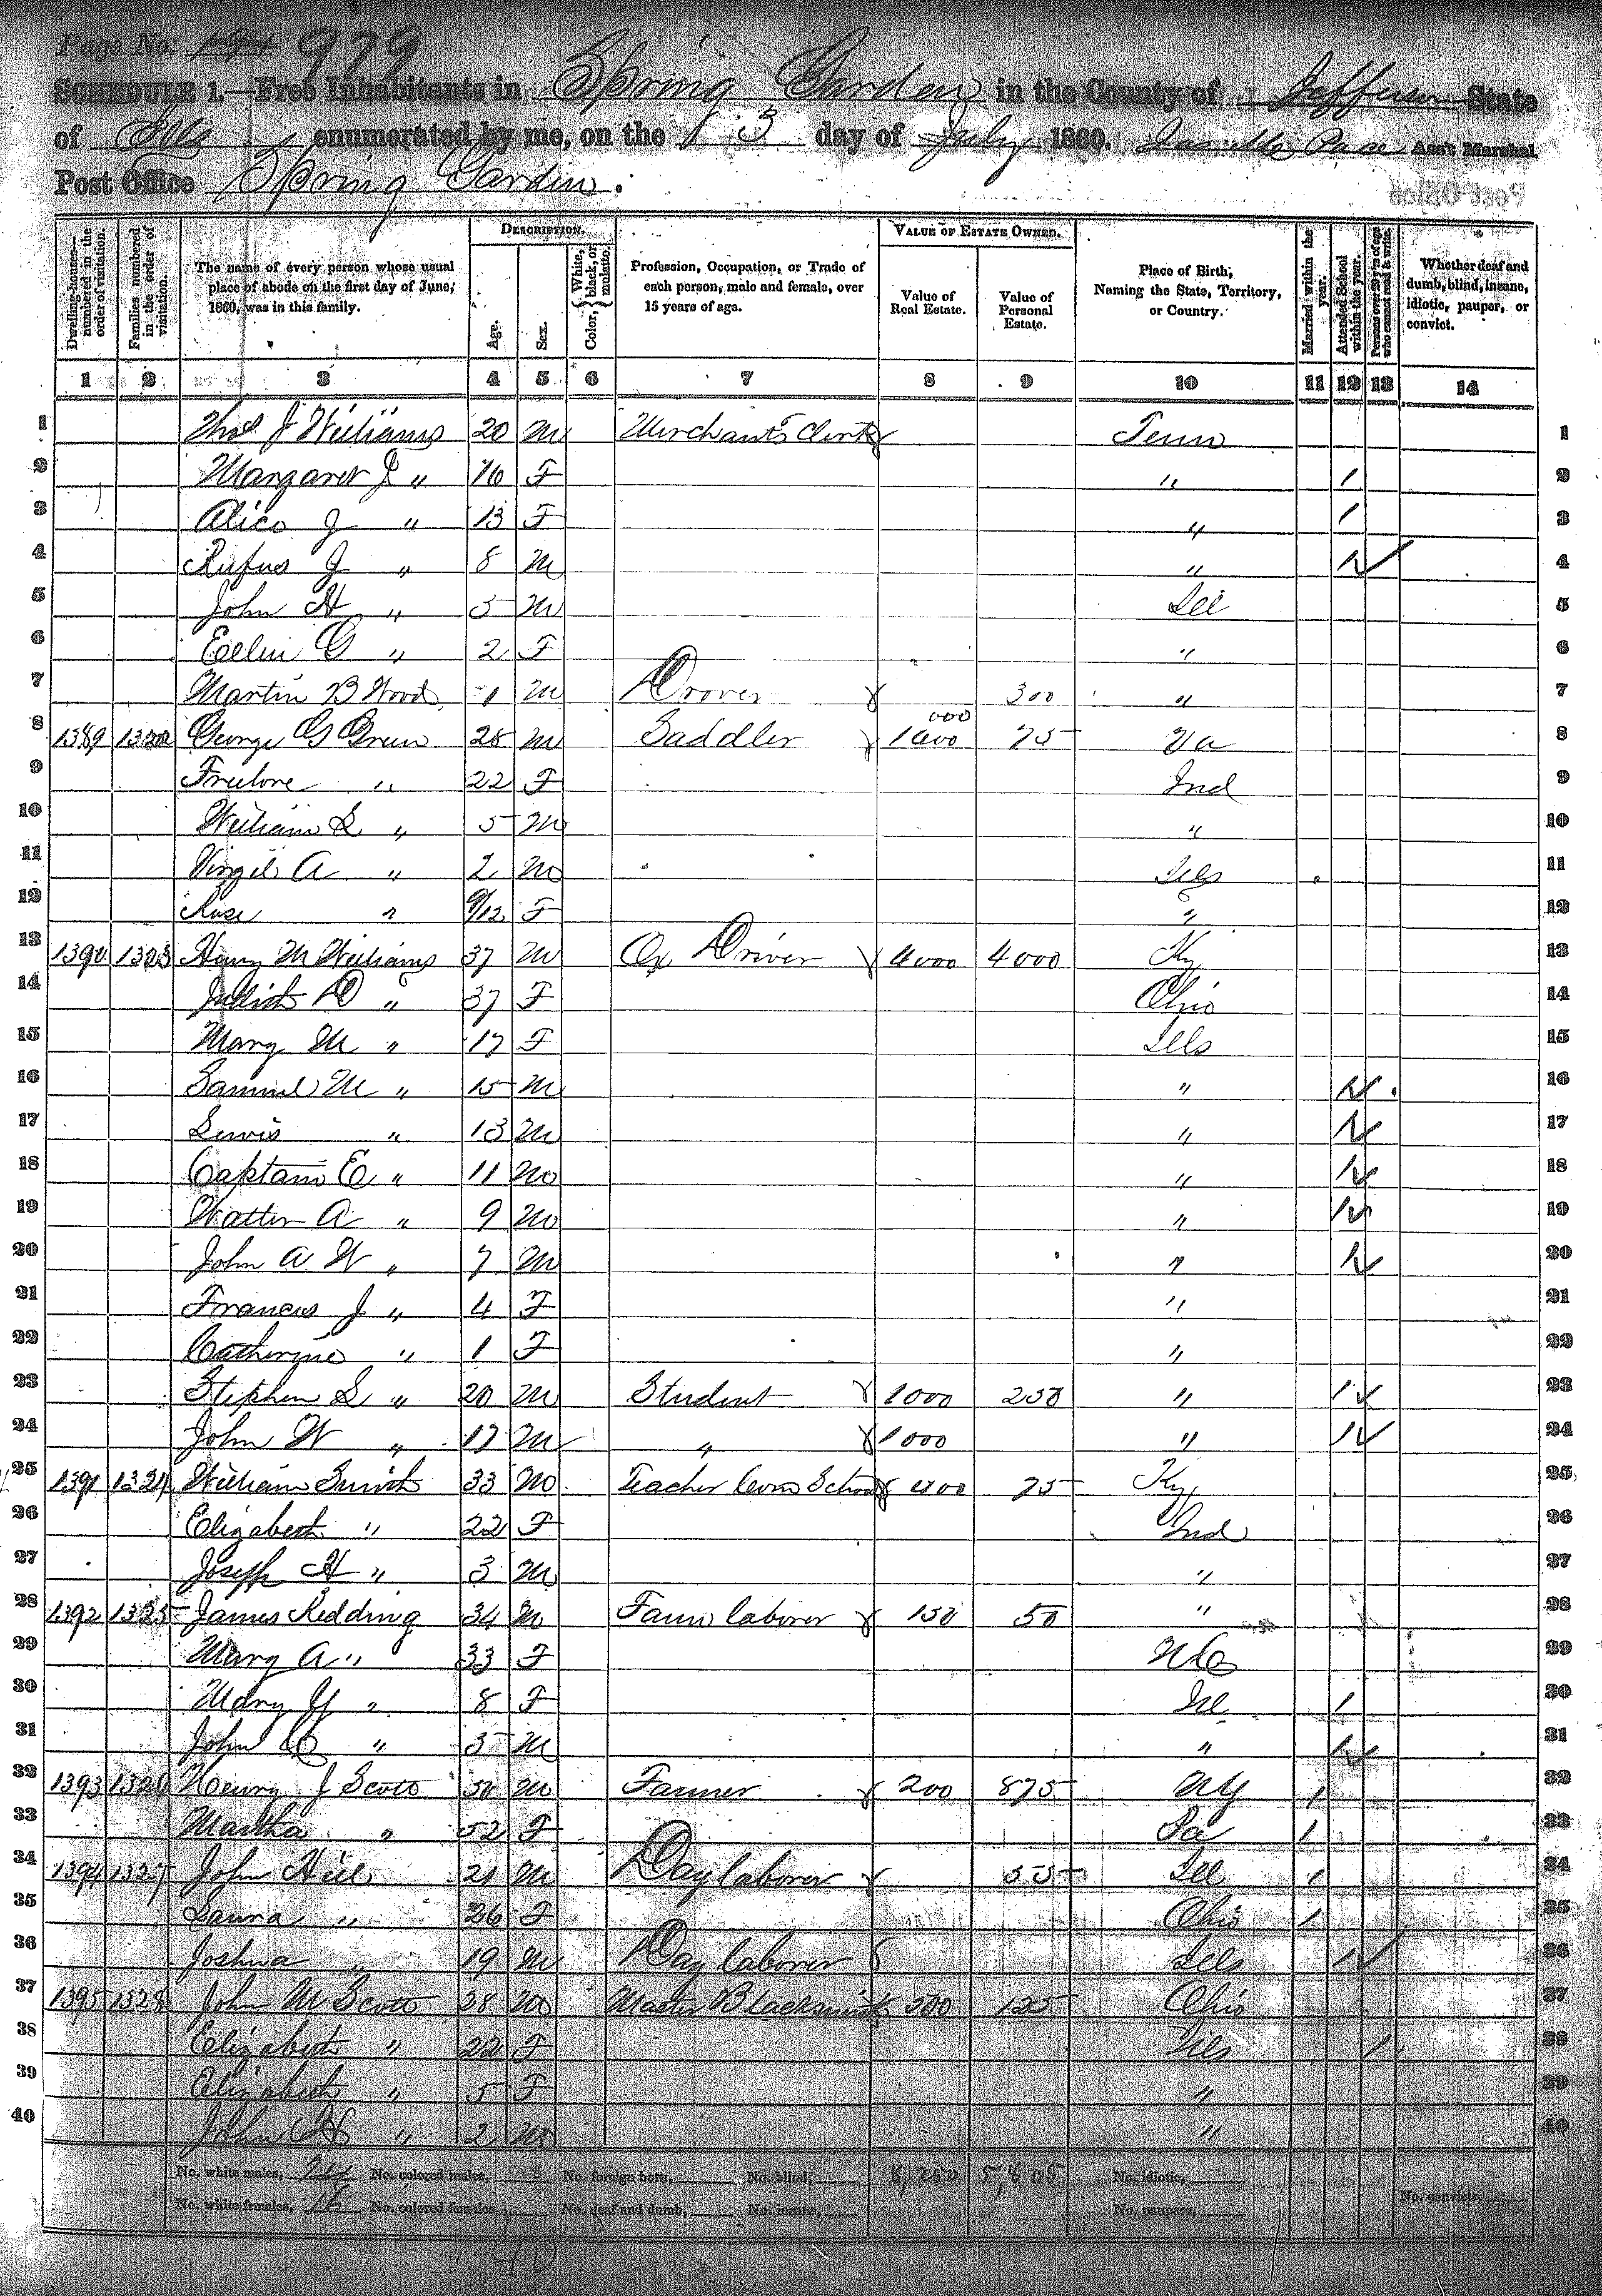 Page No. 191 979
SCHEDULE 1.—Free Inhabitants in Spring Garden in the County of Jefferson State
of Ills enumerated by me, on the 13 day of July 1860. Pace Ass't Marshal.
Post Office Spring Garden.
Dwelling-houses—numbered in the order of visitation.
Families numbered in the order of visitation.
The name of every person whose usual place of abode on the first day of June, 1860, was in this family.
DESCRIPTION.
Age.
Sex.
Color, White, black, or mulatto.
Profession, Occupation, or Trade of each person, male and female, over 15 years of age.
VALUE OF ESTATE OWNED.
Value of Real Estate.
Value of Personal Estate.
Place of Birth, Naming the State, Territory, or Country.
Married within the year.
Attended School within the year.
Persons over 20 y'rs of age who cannot read & write.
Whether deaf and dumb, blind, insane, idiotic, pauper, or convict.
1 2 3 4 5 6 7 8 9 10 11 12 13 14
1 Thos J Williams 20 M Merchants Clerk Tenn 1
2 Margaret J " 16 F " 1 2
3 Alice J " 13 F " 1 3
4 Rufus J " 8 M " 1 4
5 John H " 5 M Ill 5
6 Ellen G " 2 F " 6
7 Martin B Wood 1 M Drover 300 " 7
8 1389 1322 George G Green 28 M Saddler 1000 75 Va 8
9 Freelove " 22 F Ind 9
10 William S " 5 M " 10
11 Virgil A " 2 M Ills 11
12 Rose " 9/12 F " 12
13 1390 1323 Harry M Williams 37 M Ox Driver 4000 4000 Ky 13
14 Julich D " 37 F Ohio 14
15 Mary M " 17 F Ills 15
16 Samuel M " 15 M " 1 16
17 Lewis " 13 M " 1 17
18 Captain E " 11 M " 1 18
19 Walter A " 9 M " 1 19
20 John A W " 7 M " 1 20
21 Francis J " 4 F " 21
22 Catherine " 1 F " 22
23 Stephen S " 20 M Student 1000 250 " 1 23
24 John W " 17 M " 1000 " 1 24
25 1391 1324 William Smith 33 M Teacher Com School 400 75 Ky 25
26 Elizabeth " 22 F Ind 26
27 Joseph H " 3 M " 27
28 1392 1325 James Redding 34 M Farm laborer 150 50 " 28
29 Mary A " 33 F N C 29
30 Mary Y " 8 F Ill 1 30
31 John C " 5 M " 1 31
32 1393 1326 Henry J Scott 50 M Farmer 200 875 N Y 1 32
33 Martha " 52 F Pa 1 33
34 1394 1327 John Hill 21 M Day laborer 55 Ill 1 34
35 Laura " 26 F Ohio 1 35
36 Joshua " 19 M Day laborer Ills 1 36
37 1395 1328 John M Scott 38 M Master Blacksmith 500 125 Ohio 37
38 Elizabeth " 22 F Ills 1 38
39 Elizabeth " 5 F " 39
40 John H " 2 M " 40
No. white males, 24 No. colored males, No. foreign born, No. blind, 8,250 5,805 No. idiotic,
No. white females, 16 No. colored females, No. deaf and dumb, No. insane, No. paupers, No. convicts,
40